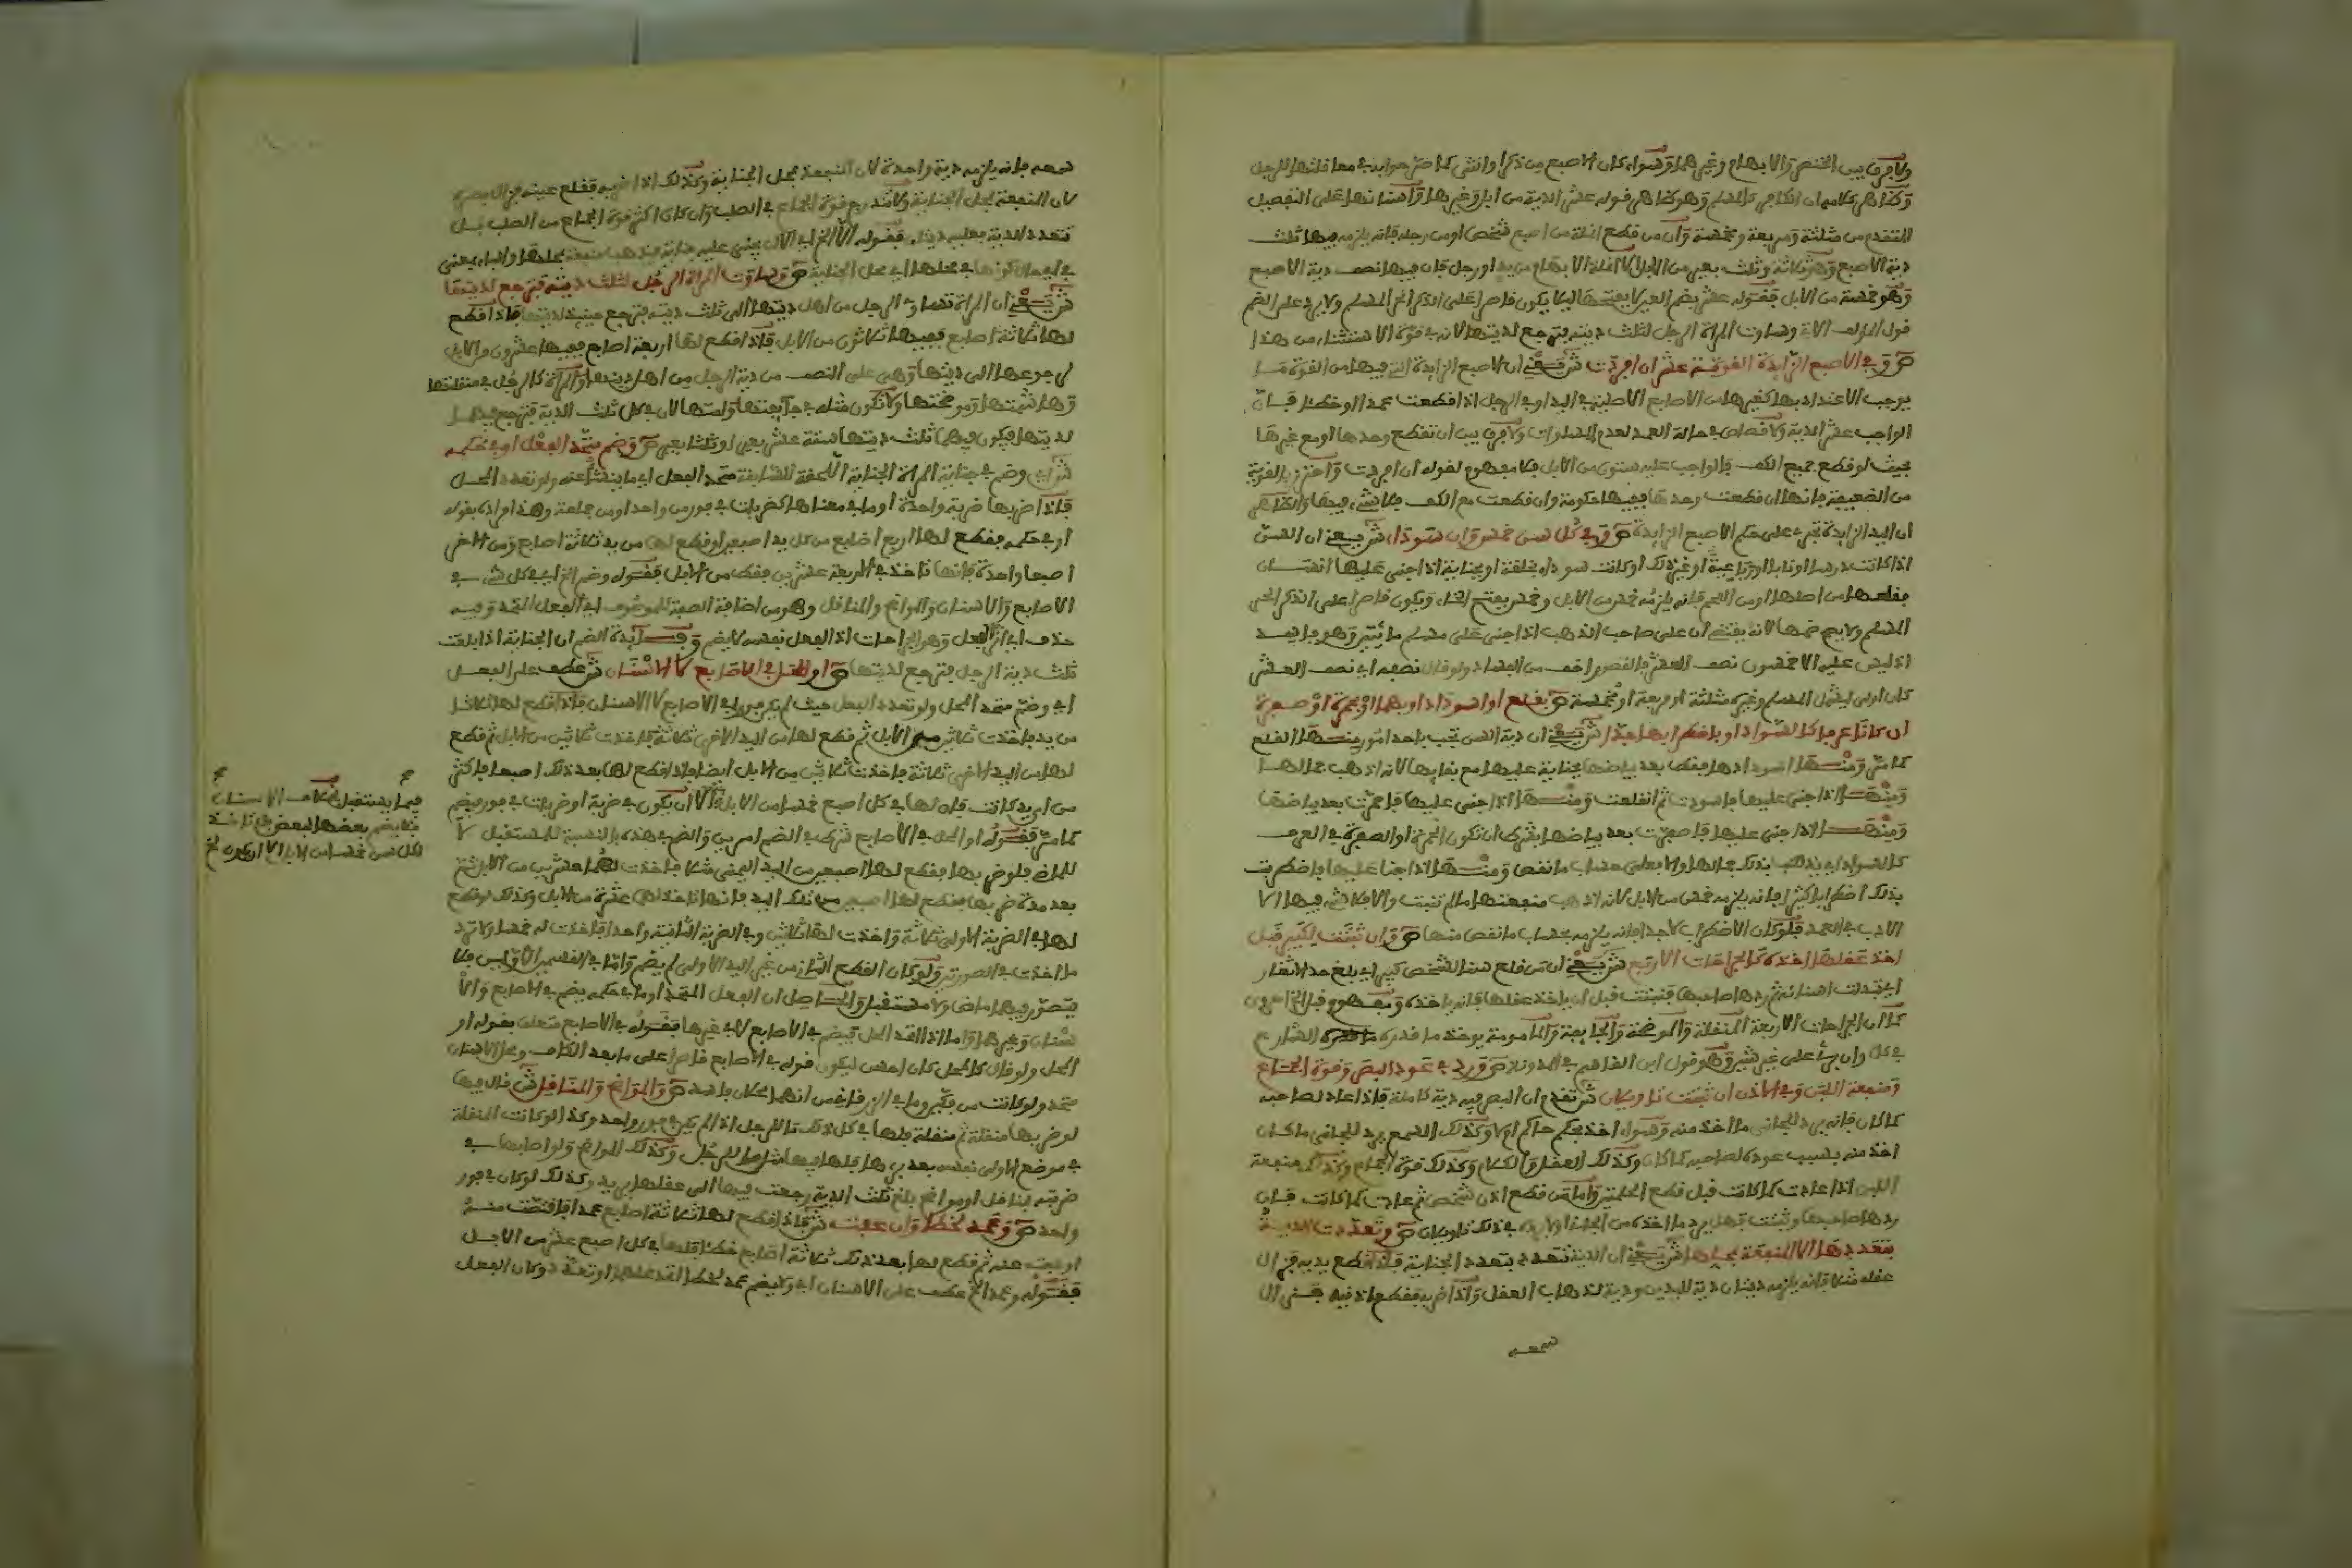 ولا فرق بين الخنصر والابهام وغيرهما وسواء كان الاصبع من ذكر او انثى
وظاهر كلامه ان الكافر كالمسلم وهو ظاهر قوله عشر الدية من ابل وغيرها واسنانها على التفصيل
المتقدم من مثلثة ومربعة ومخمسة وان من قطع انملة من اصبع شخص او من رجله فانه يلزمه فيها ثلث
دية الاصبع وهو ثلاثة وثلث بعير من الابل الا انملة الابهام من يد او رجل فان فيها نصف دية الاصبع
وهو خمسة من الابل فقوله عشر بضم العين لا بفتحها ليلا يكون قاصرا على الذكر الحر المسلم ولا يرد على الضم
قول المؤلف الاتي وساوت المراة الرجل لثلث ديته فترجع لديتها لانه في قوة الاستثناء من هذا
ص وفي الاصبع الزايدة القوية عشر ان افردت ش يعني ان الاصبع الزايدة التي فيها من القوة ما
يوجب الاعتداد بها كغيرها من الاصابع الاصلية في اليد او في الرجل اذا قطعت عمدا او خطئا فان
الواجب عشر الدية ولا قصاص في حالة العمد لعدم المساوات ولا فرق بين ان تقطع وحدها او مع غيرها
بحيث لو قطع جميع الكف فالواجب عليه ستون من الابل فلا مفهوم لقوله ان افردت واحترز بالقوية
من الضعيفة فانها ان قطعت وحدها ففيها حكومة وان قطعت مع الكف فلا شيء فيها والظاهر
ان اليد الزايدة تجري على حكم الاصبع الزايدة ص وفي كل سن خمس وان سوداء ش يعني ان السن
اذا كانت ضرسا او نابا او رباعية او غير ذلك او كانت سوداء بخلقة او بجناية اذا جنى عليها انسان
فقلعها من اصلها او من اللحم فانه يلزمه خمس من الابل وخمس بفتح الخاء ويكون قاصرا على الذكر الحر
المسلم ولا يصح ضمها لانه يقتضي ان على صاحب الذهب اذا جنى على مسلم مائتين وهو فاسد
اذ ليس عليه الا خمسون نصف العشر فالقصور اخف من الفساد ولو قال نصفه اي نصف العشر
كان اولى ليشمل المسلم وغيره مثلثة او مربعة او مخمسة ص بقلع او اسوداد او بهما او بحمرة او صفرة
ان كانا عرفا كالسواد او باضطرابها جدا ش يعني ان دية السن تجب باحد امور منها القلع
كما مر ومنها اسودادها فقط بعد بياضها بجناية عليها مع بقايها لانه اذهب جمالها
ومنها اذا جنى عليها فاسودت ثم انقلعت ومنها اذا جنى عليها فاحمرت بعد بياضها
ومنها اذا جنى عليها فاصفرت بعد بياضها بشرط ان تكون الحمرة او الصفرة في العرف
كالسواد اي يذهب بذلك جمالها والا فعلى حساب ما نقص ومنها اذا جنا عليها فاضطربت
بذلك اضطرابا كثيرا فانه يلزمه خمس من الابل لانه اذهب منفعتها ما لم تثبت والا فلا شيء فيها الا
الادب في العمد فلو كان الاضطراب لا جدا فانه يلزمه بحساب ما نقص منها ص وان ثبتت لكبير قبل
اخذ عقلها اخذه كالجراحات الاربع ش يعني ان من قلع سن الشخص كبير اي بلغ حد الاثغار
اي تبدلت اسنانه ثم ردها صاحبها فثبتت قبل ان ياخذ عقلها فانه ياخذه
كما ان الجراحات الاربعة المنقلة والموضحة والجايفة والمامومة يوخذ ما قدره الشارع
في كل وان برئ على غير شين وهو قول ابن القاسم في المدونة ص ورد في عود البصر وقوة الجماع
ومنفعة اللبن وفي الاذن ان ثبتت تاويلان ش تقدم ان البصر فيه دية كاملة فاذا عاد لصاحبه
كما كان فانه يرد للجاني ما اخذ منه وسواء اخذ بحكم حاكم او لا وكذلك السمع يرد للجاني ما كان
اخذ منه بسبب عوده لصاحبه كما كان وكذلك العقل والكلام وكذلك قوة الجماع وكذلك منفعة
اللبن اذا عادت كما كانت قبل قطع الحلمتين واما من قطع اذن شخص ثم عادت كما كانت فان
ردها صاحبها وثبتت فهل يرد ما اخذه من الجاني او لا يرد في ذلك تاويلان ص وتعددت الدية
بتعددها الا المنفعة بمحلها ش يعني ان الدية تتعدد بتعدد الجناية فاذا قطع يديه فزال
عقله مثلا فانه يلزمه ديتان دية لليدين ودية لذهاب العقل واذا ضربه فقطع اذنيه فزال
سمعه
سمعه فانه يلزمه دية واحدة لان المنفعة بمحل الجناية وكذلك اذا ضربه فقلع عينه فزال بصره
لان المنفعة بمحل الجناية ولا تندرج قوة الجماع في الصلب وان كان اكثر قوة الجماع من الصلب بل
تتعدد الدية فعليه ديتان فقوله الا الخ اي الا ان يجني عليه جناية فيذهب منفعة بمحلها والباء بمعنى
في اي حال كونها في محلها اي محل الجناية ص وساوت المراة الرجل لثلث ديته فترجع لديتها
ش يعني ان المراة تساوي الرجل من اهل ديتها الى ثلث ديته فترجع حينيذ لديتها فاذا قطع
لها ثلاثة اصابع ففيها ثلاثون من الابل فاذا قطع لها اربعة اصابع ففيها عشرون من الابل
لرجوعها الى ديتها وهي على النصف من دية الرجل من اهل دينها والمراة كالرجل في منقلتها
وهاشمتها وموضحتها ولا تكون مثله في جايفتها وامتها لان في كل ثلث الدية فترجع فيهما
لديتها فيكون فيهما ثلث ديتها ستة عشر بعيرا وثلثا بعير ص وضم متحد الفعل او في حكمه
ش اي وضم في جناية المراة الجناية اللاحقة للسابقة متحد الفعل اي ما ينشا عنه ولو تعدد المحل
فاذا ضربها ضربة واحدة او ما في معناها كضربات في فور من واحد او من جماعة وهذا مراده بقوله
او في حكمه فقطع لها اربع اصابع من كل يد اصبعين او قطع لها من يد ثلاثة اصابع ومن الاخرى
اصبعا واحدة فانها تاخذ في الاربعة عشرين فقط من الابل فقوله وضم الخ اي في كل شيء في
الاصابع والاسنان والمواضح والمناقل وهو من اضافة الصفة للموصوف اي الفعل المتحد وفيه
حذف اي اثر الفعل وهو الجراحات اذ الفعل نفسه لا يضم وفايدة الضم ان الجناية اذا بلغت
ثلث دية الرجل فترجع لديتها ص او المحل في الاصابع لا الاسنان ش عطف على الفعل
اي وضم متحد المحل ولو تعدد الفعل حيث لم يكن فورا في الاصابع لا الاسنان فاذا قطع لها ثلاثا
من يد فاخذت ثلاثين من الابل ثم قطع لها من اليد الاخرى ثلاثة فاخذت ثلاثين من الابل ثم قطع
لها من اليد الاخرى ثلاثة فاخذت ثلاثين من الابل ايضا فاذا قطع لها بعد ذلك اصبعا فاكثر
من اي يد كانت فان لها في كل اصبع خمسا من الابل الا ان يكون في ضربة او ضربات في فور فيضم
كما مر فقوله او المحل في الاصابع شرط في الضم امرين والضم في هذه بالنسبة للمستقبل لا
للماضي فلو ضربها فقطع لها اصبعين من اليد اليمنى مثلا فاخذت لهما عشرين من الابل ثم
بعد مدة ضربها فقطع لها اصبعين من تلك اليد فانها تاخذ لهما عشرة من الابل وكذلك لو قطع
لها في الضربة الاولى ثلاثة واخذت لها ثلاثين وفي الضربة الثانية واحدا فاخذت له خمسا ولا ترد
ما اخذت في الصورتين ولو كان القطع الثاني من غير اليد الاولى لم يضم واما في القسم الاول فلا
يتصور فيها ماضي ولا مستقبل والحاصل ان الفعل المتحد او ما في حكمه يضم في الاصابع والا
سنان وغيرها واما اذا اتحد المحل فيضم في الاصابع لا في غيرها فقوله في الاصابع متعلق بقوله او
المحل ولو قال كالمحل كان احسن ليكون قوله في الاصابع قاصرا على ما بعد الكاف ومحل الاسنان
متحد ولو كانت من فكين وما في الزرقاني من انهما محلان فاسد ص والمواضح والمناقل ش قال فيها
لو ضربها منقلة ثم منقلة فلها في كل ذلك ما للرجل اذا لم يكن في فور واحد وكذا لو كانت المنقلة
في موضع الاولى نفسه بعد برئها فلها فيها مثل ما للرجل وكذلك المواضح ولو اصابها في
ضربة بمناقل او مواضح بلغ ثلث الدية رجعت فيها الى عقلها يريد وكذلك لو كان في فور
واحد ص وعمد لخطا وان عفت ش فاذا قطع لها ثلاثة اصابع عمدا فاقتصت منه
او عفت عنه ثم قطع لها بعد ذلك ثلاثة اصابع خطئا فلها في كل اصبع عشر من الابل
فقوله وعمد الخ عطف على الاسنان اي ولا يضم عمد لخطا اتحد محلهما او تعدد وكان الفعل
فيما يستقبل بخلاف الاسنان
فلا يضم بعضها لبعض بل تاخذ
لكل سن خمسا من الابل الا ان يكون الخ